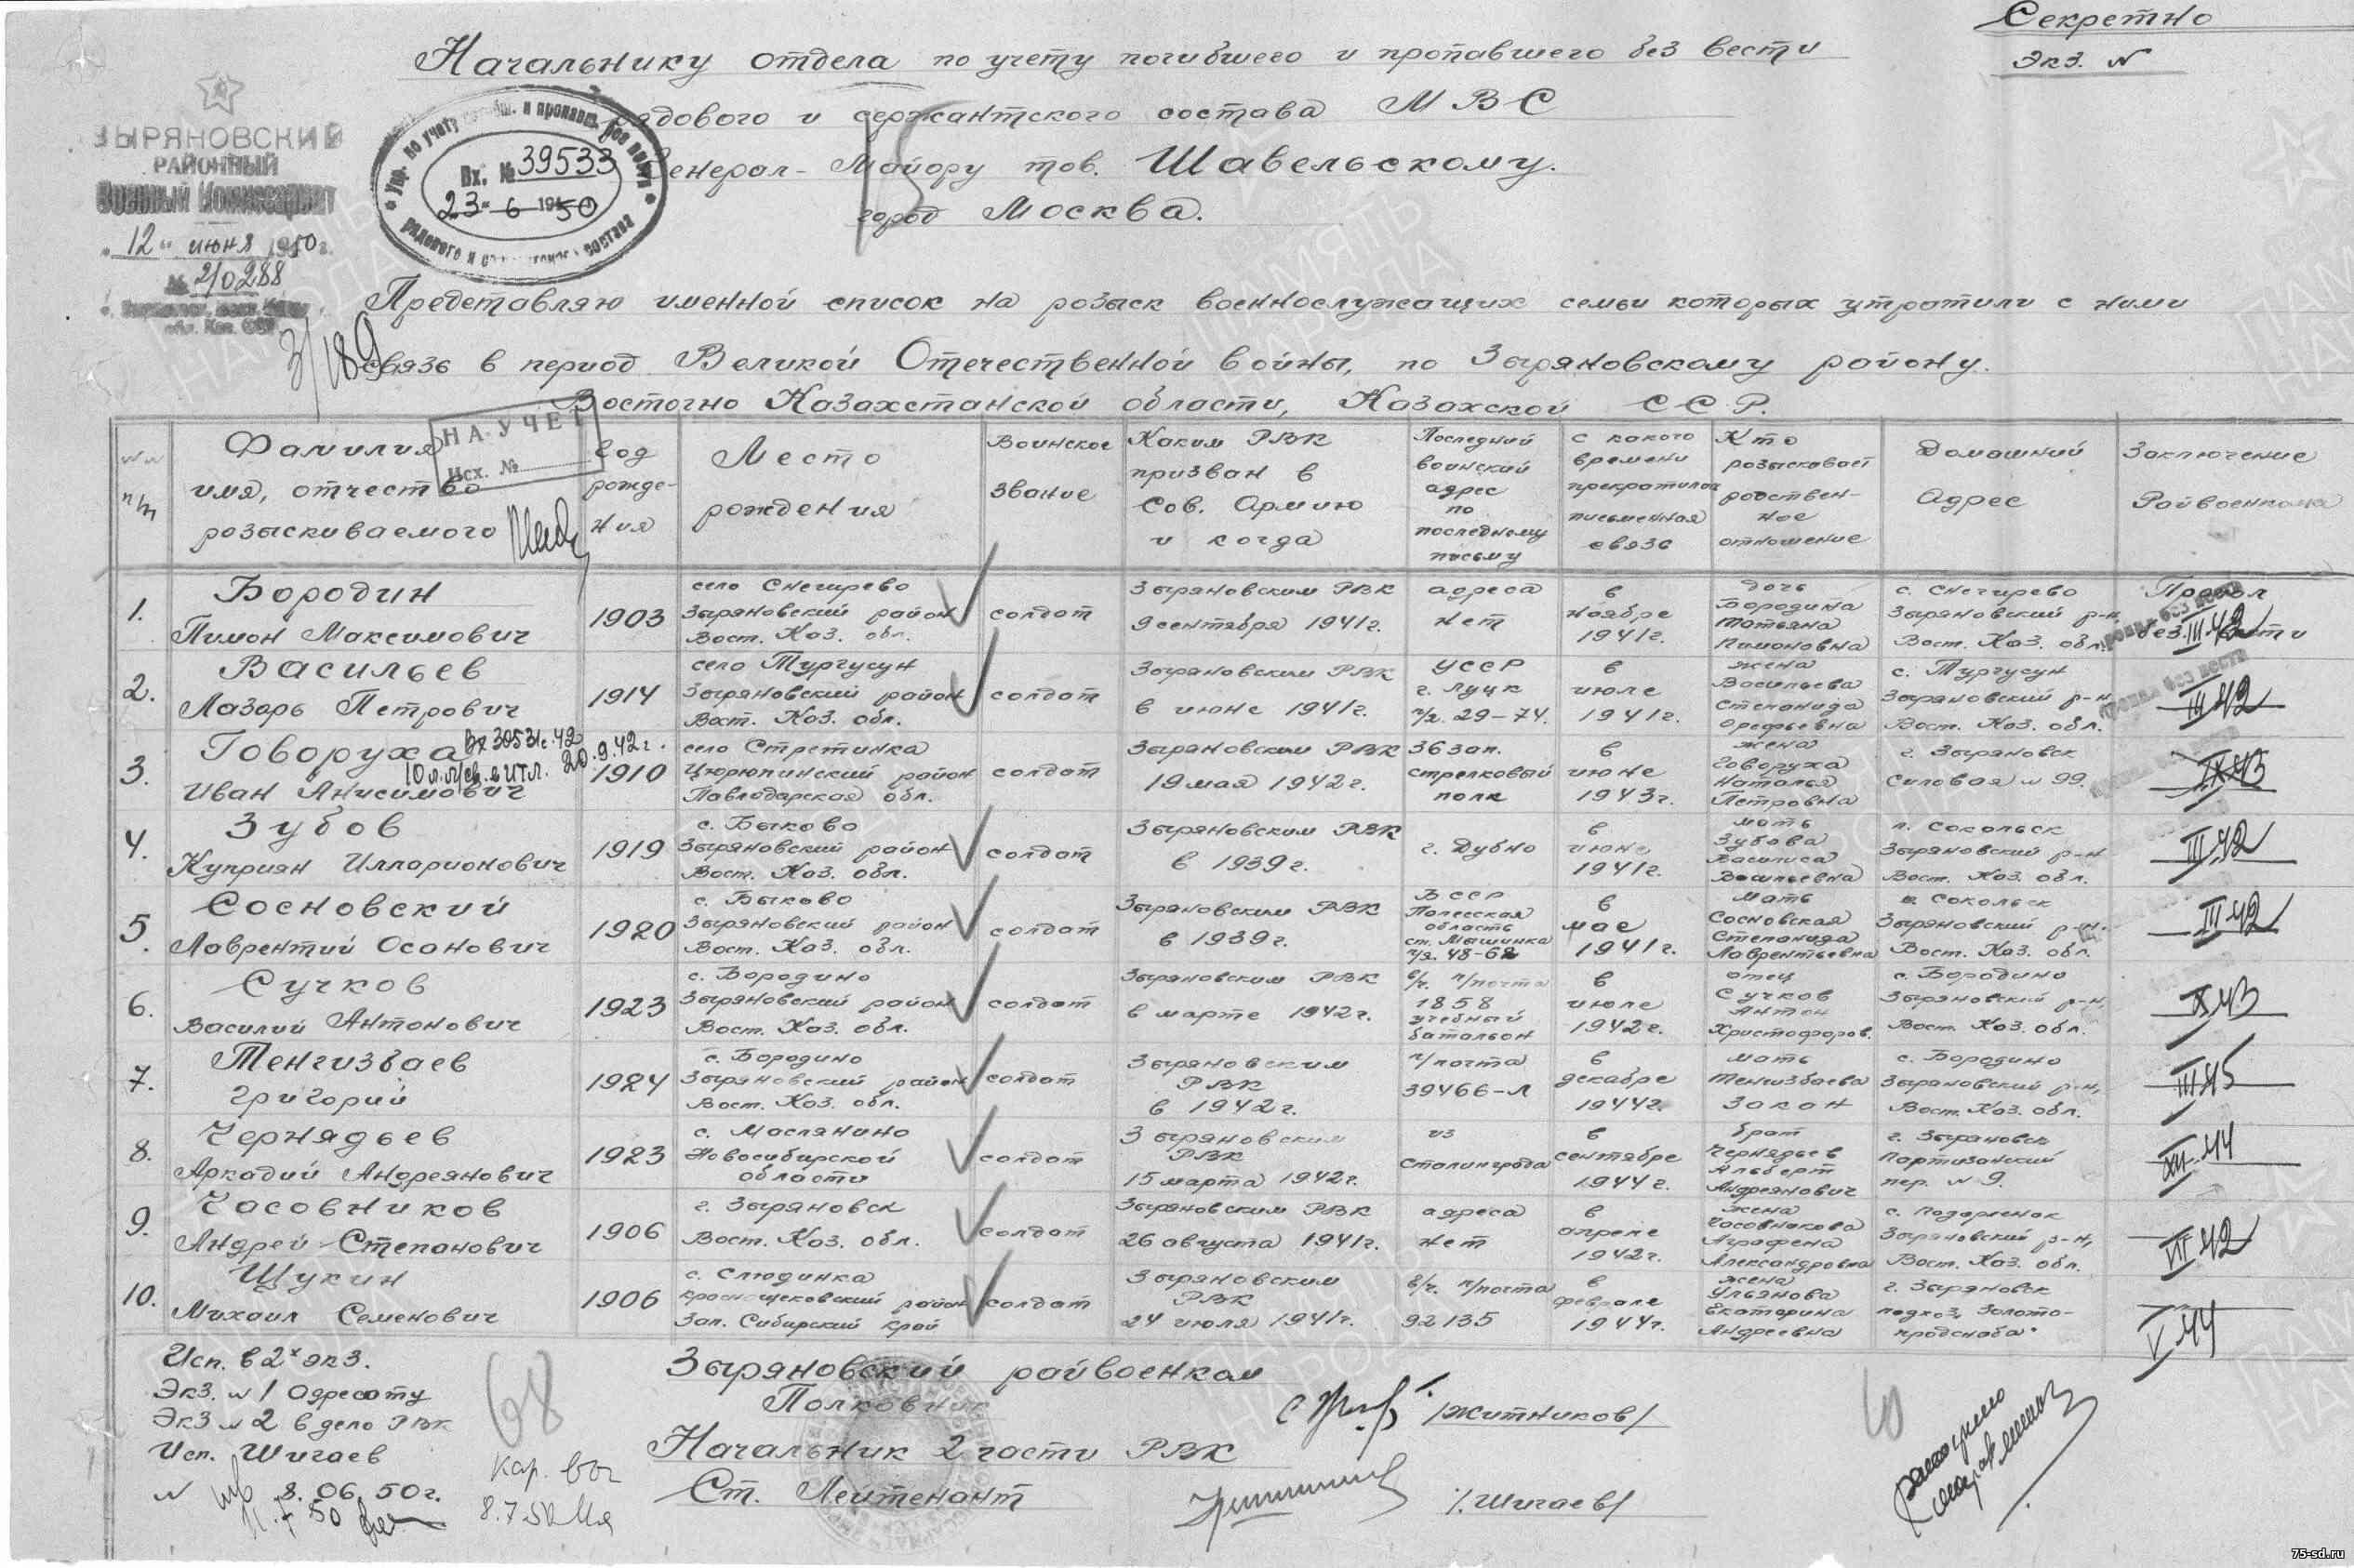 Секретно
Экз. №
Начальнику отдела по учету погибшего и пропавшего без вести
рядового и сержантского состава МВС
Генерал-Майору тов. Шавельскому.
город Москва.
ЗЫРЯНОВСКИЙ
РАЙОННЫЙ
Военный Комиссариат
"12" июня 1950г.
№ 2/0288
3/189
Упр. по учету погибш. и пропавш. без вести
Вх. № 39533
23-6 1950
рядового и сержантск. состава
Представляю именной список на розыск военнослужащих семьи которых утратили с ними
связь в период Великой Отечественной войны, по Зыряновскому району.
Восточно Казахстанской области, Казахской ССР.
НА УЧЕТ
Исх. №
№№ п/п
Фамилия имя, отчество разыскиваемого
Год рождe-ния
Место рождения
Воинское звание
Каким РВК призван в Сов. Армию и когда
Последний воинский адрес по последнему письму
с какого времени прекратилась письменная связь
Кто розыскивает родствен-ное отношение
Домашний Адрес
Заключение Райвоенкома
1. Бородин Пимон Максимович 1903 село Снегирево Зыряновский район Вост. Каз. обл. солдат Зыряновским РВК 9 сентября 1941г. адреса нет в ноябре 1941г. дочь Бородина Татьяна Пимоновна с. Снегирево Зыряновский р-н Вост. Каз. обл. Пропал без вести III.42
2. Васильев Лазарь Петрович 1914 село Тургусун Зыряновский район Вост. Каз. обл. солдат Зыряновским РВК в июне 1941г. УССР г. Луцк п/я. 29-74. в июле 1941г. жена Васильева Степанида Орефьевна с. Тургусун Зыряновский р-н Вост. Каз. обл. пропал без вести III.42
3. Говоруха Вх 30531с.42 20.9.42г. Иван Анисимович 1910 село Стретинка Цюрюпинский район Павлодарская обл. солдат Зыряновским РВК 19 мая 1942г. 36 зап. стрелковый полк в июне 1943г. жена Говоруха Наталья Петровна г. Зыряновск Силовая № 99. IX.43
4. Зубов Куприян Илларионович 1919 с. Быково Зыряновский район Вост. Каз. обл. солдат Зыряновским РВК в 1939г. г. Дубно в июне 1941г. мать Зубова Василиса Васильевна п. Сокольск Зыряновский р-н Вост. Каз. обл. III.42
5. Сосновский Лаврентий Осанович 1920 с. Быково Зыряновский район Вост. Каз. обл. солдат Зыряновским РВК в 1939г. БССР Полесская область ст. Мышинка п/я. 48-62 в мае 1941г. мать Сосновская Степанида Лаврентьевна Сокольск Зыряновский р-н. Вост. Каз. обл. III.42
6. Сучков Василий Антонович 1923 с. Бородино Зыряновский район Вост. Каз. обл. солдат Зыряновским РВК в марте 1942г. в/ч. п/почта 1858 учебный батальон в июле 1942г. отец Сучков Антон Христофоров. с. Бородино Зыряновский р-н, Вост. Каз. обл. X.43
7. Тенгизбаев Григорий 1924 с. Бородино Зыряновский район Вост. Каз. обл. солдат Зыряновским РВК в 1942г. п/почта 39466-Л в декабре 1944г. мать Тенгизбаева Закан с. Бородино Зыряновский р-н, Вост. Каз. обл. III.45
8. Чернядьев Аркадий Андреянович 1923 с. Маслянино Новосибирской области солдат Зыряновским РВК 15 марта 1942г. из Сталинграда в сентябре 1944г. брат Чернядьев Альберт Андреянович г. Зыряновск Партизанский пер. № 9. XII.44
9. Часовников Андрей Степанович 1906 г. Зыряновск Вост. Каз. обл. солдат Зыряновским РВК 26 августа 1941г. адреса нет в апреле 1942г. жена Часовникова Аграфена Александровна с. Подорленок Зыряновский р-н, Вост. Каз. обл. VII.42
10. Щукин Михаил Семенович 1906 с. Слюдинка Краснощековский район Зап. Сибирский край солдат Зыряновским РВК 24 июля 1941г. в/ч. п/почта 92135 в феврале 1944г. жена Ульянова Екатерина Андреевна г. Зыряновск подхоз Золото-продснаба. V.44
Исп. в 2х экз.
Экз. № 1 Адресату
Экз № 2 в дело РВК
Исп. Шигаев
№ 8.06.50г.
68
Зыряновский райвоенком
Полковник /Житников/
Начальник 2 части РВК
Ст. Лейтенант /Шигаев/
ПАМЯТЬ НАРОДА
75-sd.ru